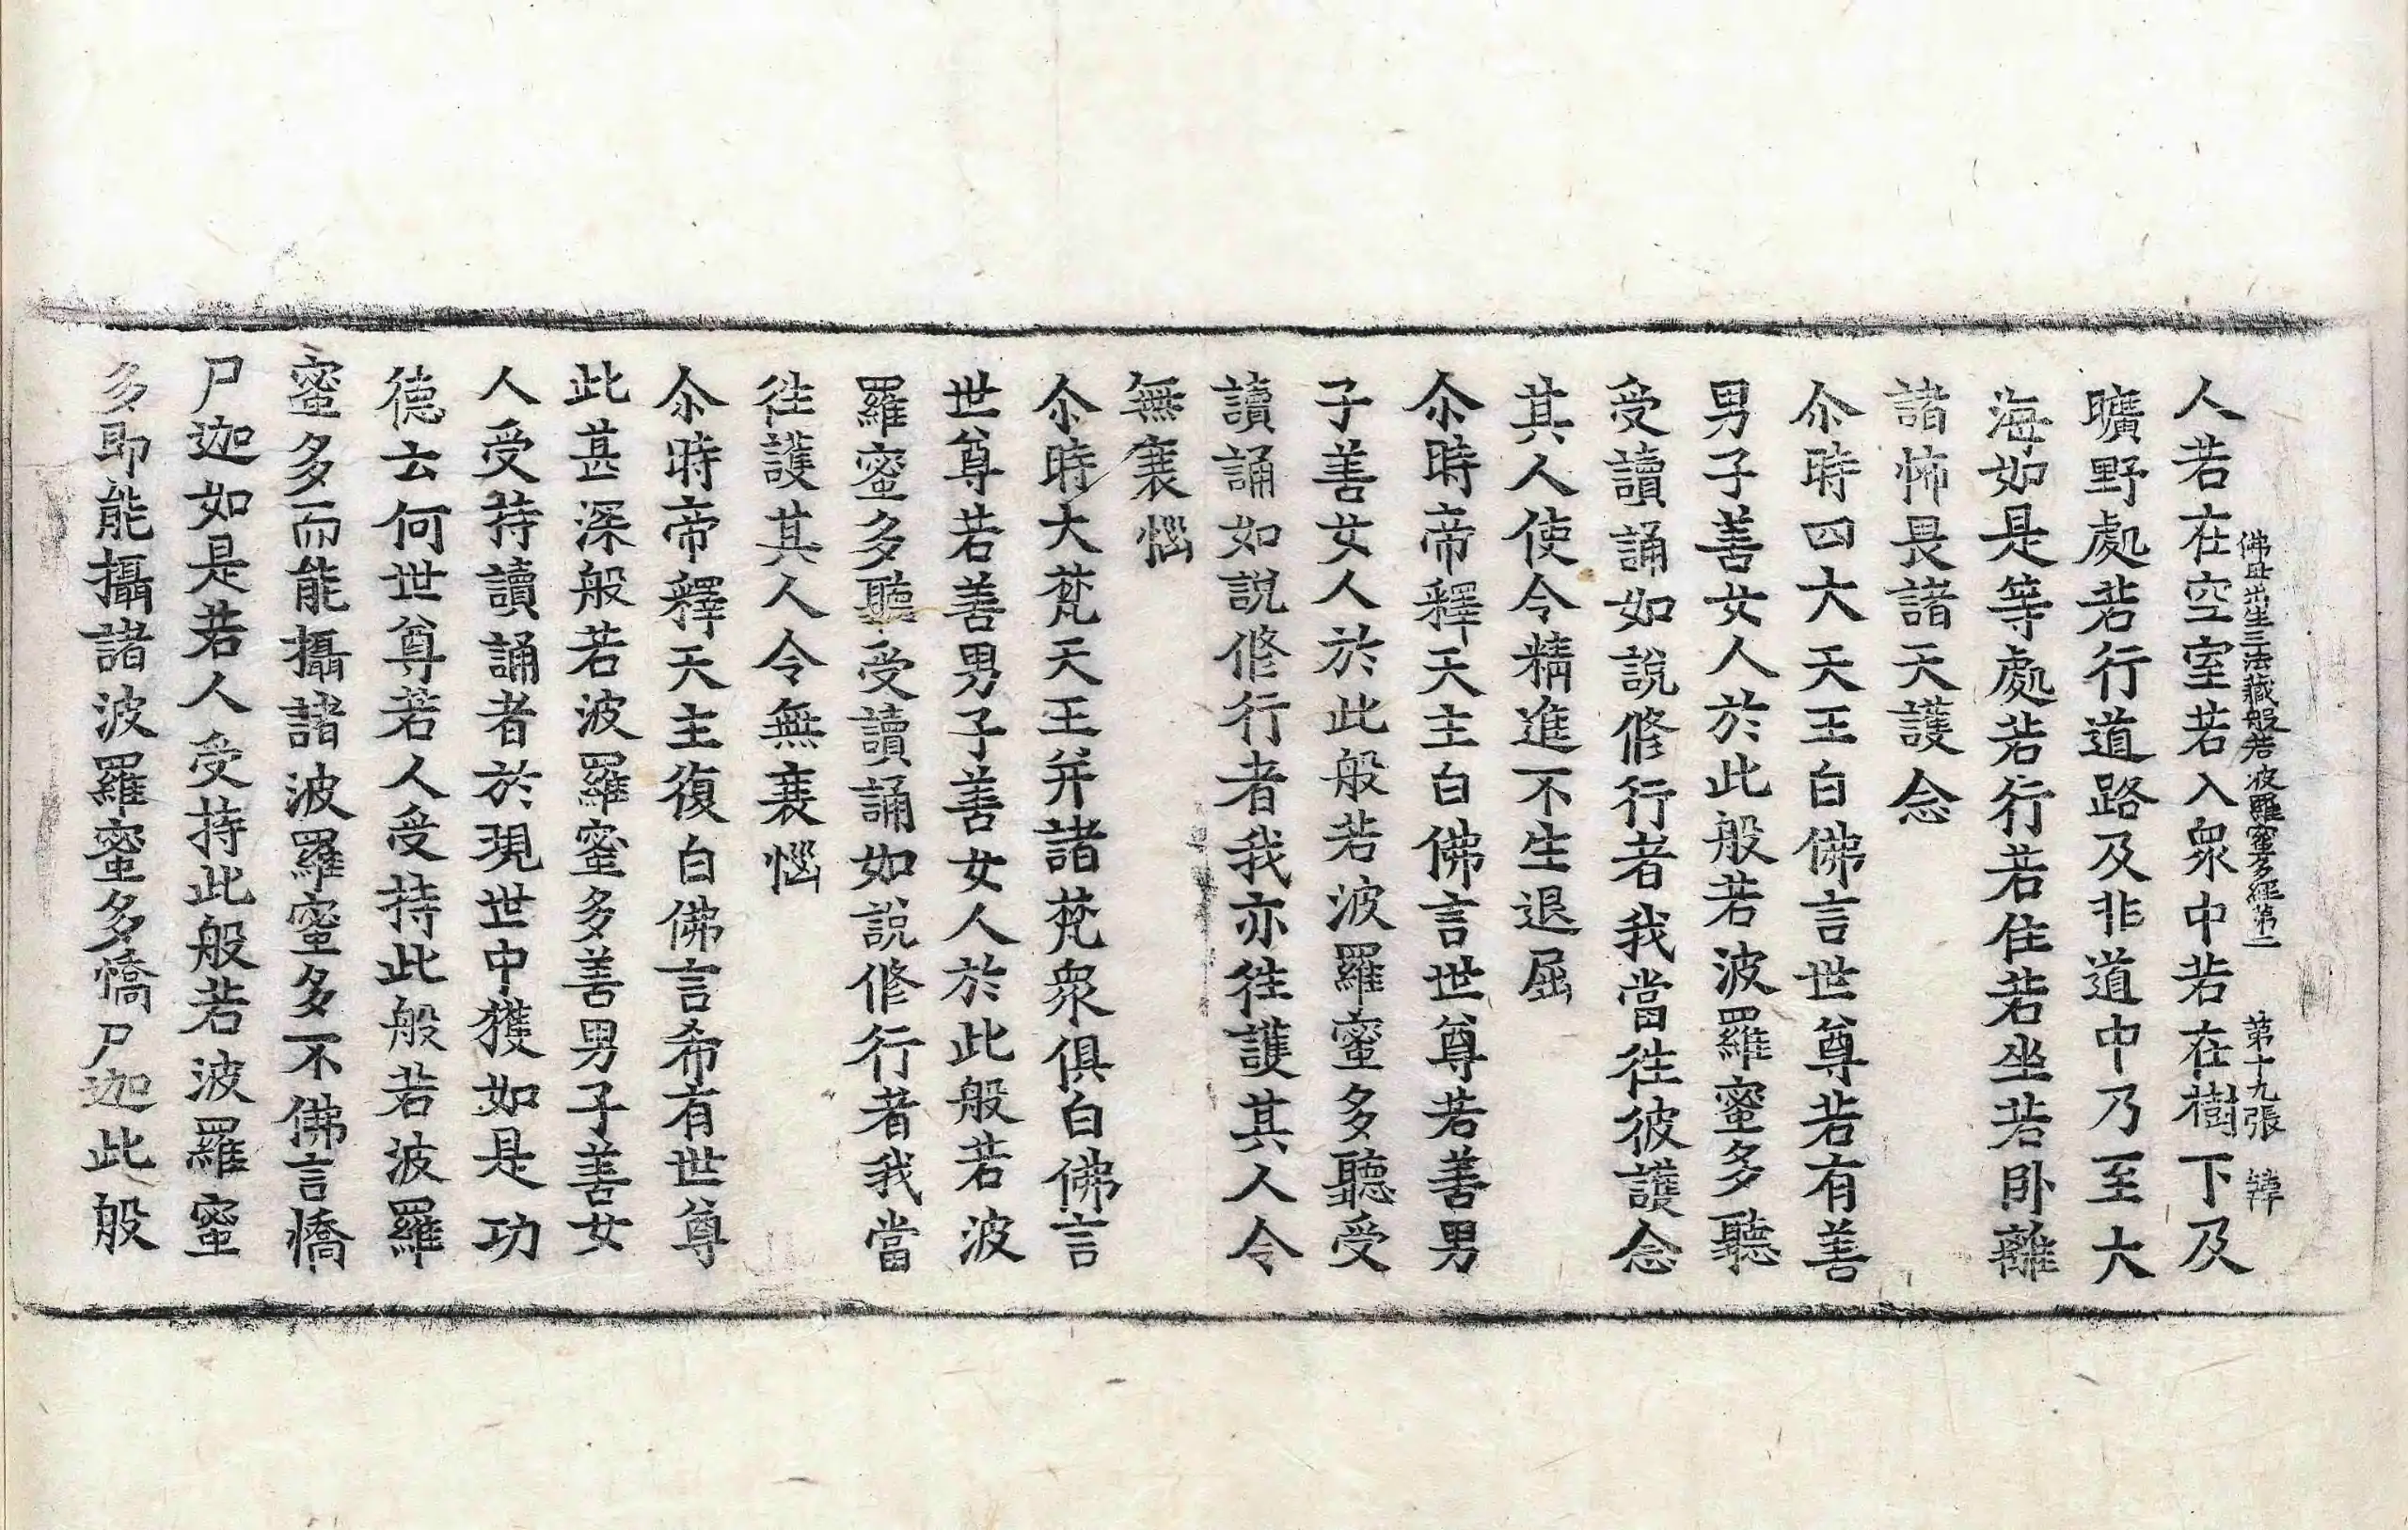 佛母出生三法藏般若波羅蜜多經第二 第十九張 韓
人若在空室若入衆中若在樹下及
曠野處若行道路及非道中乃至大
海如是等處若行若住若坐若卧離
諸怖畏諸天護念
尒時四大天王白佛言世尊若有善
男子善女人於此般若波羅蜜多聽
受讀誦如說修行者我當往彼護念
其人使令精進不生退屈
尒時帝釋天主白佛言世尊若善男
子善女人於此般若波羅蜜多聽受
讀誦如說修行者我亦往護其人令
無衰惱
尒時大梵天王并諸梵衆俱白佛言
世尊若善男子善女人於此般若波
羅蜜多聽受讀誦如說修行者我當
往護其人令無衰惱
尒時帝釋天主復白佛言希有世尊
此甚深般若波羅蜜多善男子善女
人受持讀誦者於現世中獲如是功
德云何世尊若人受持此般若波羅
蜜多而能攝諸波羅蜜多不佛言憍
尸迦如是若人受持此般若波羅蜜
多即能攝諸波羅蜜多憍尸迦此般